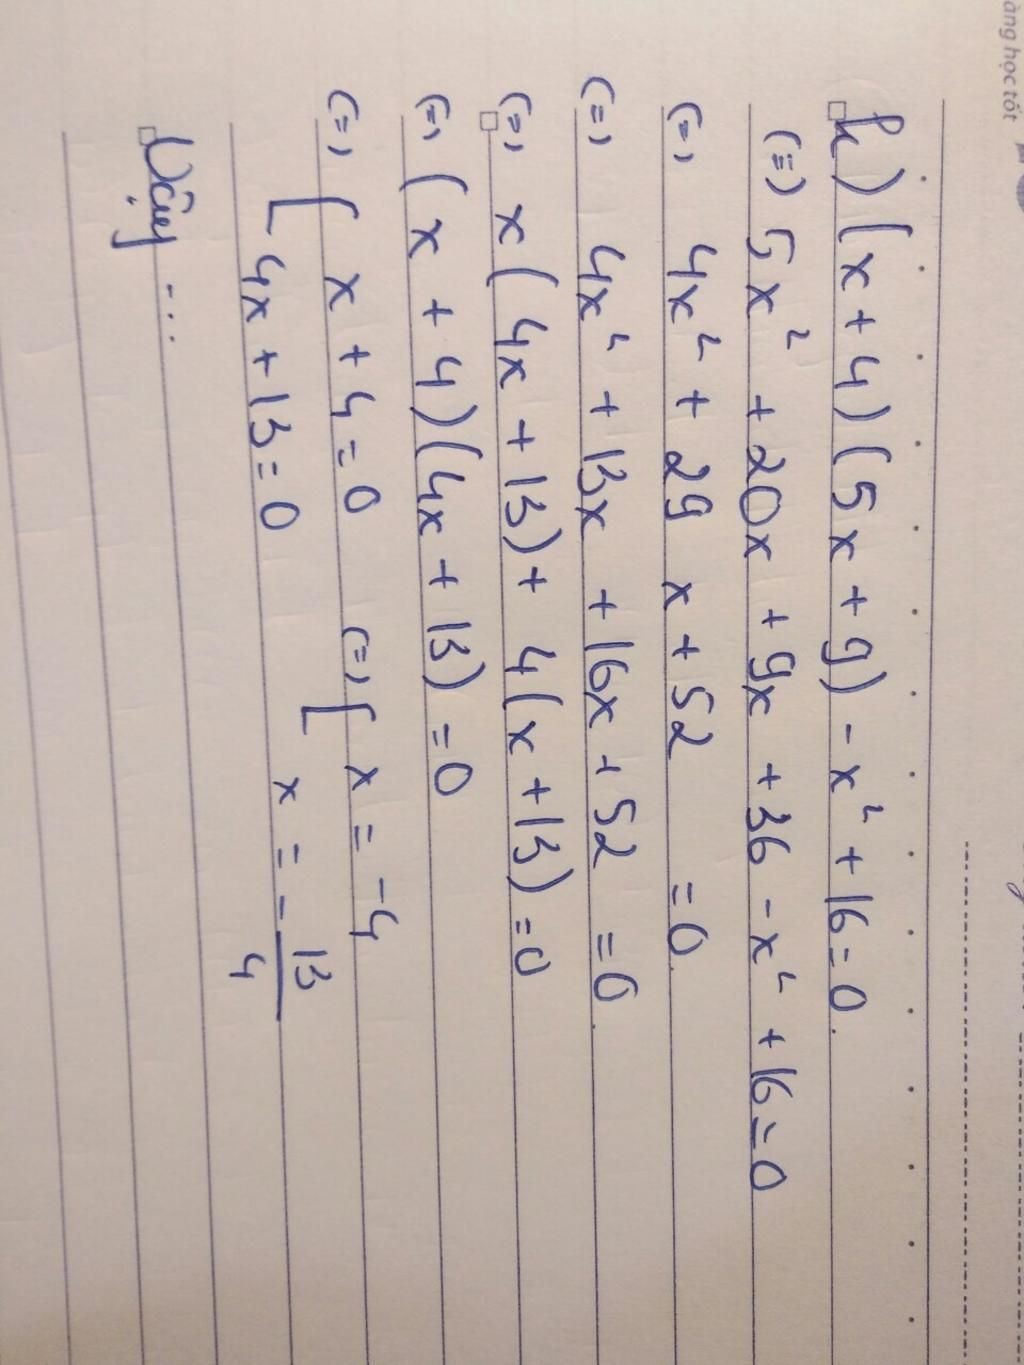 àng học tốt
h) (x + 4) (5x + 9) - x² + 16 = 0.
(=) 5x² + 20x + 9x + 36 - x² + 16 = 0
(=) 4x² + 29x + 52 = 0.
(=) 4x² + 13x + 16x + 52 = 0.
(=) x (4x + 13) + 4 (x + 13) = 0
(=) (x + 4) (4x + 13) = 0
(=) [ x + 4 = 0 (=) [ x = -4
4x + 13 = 0 x = - 13/4
Vậy ...